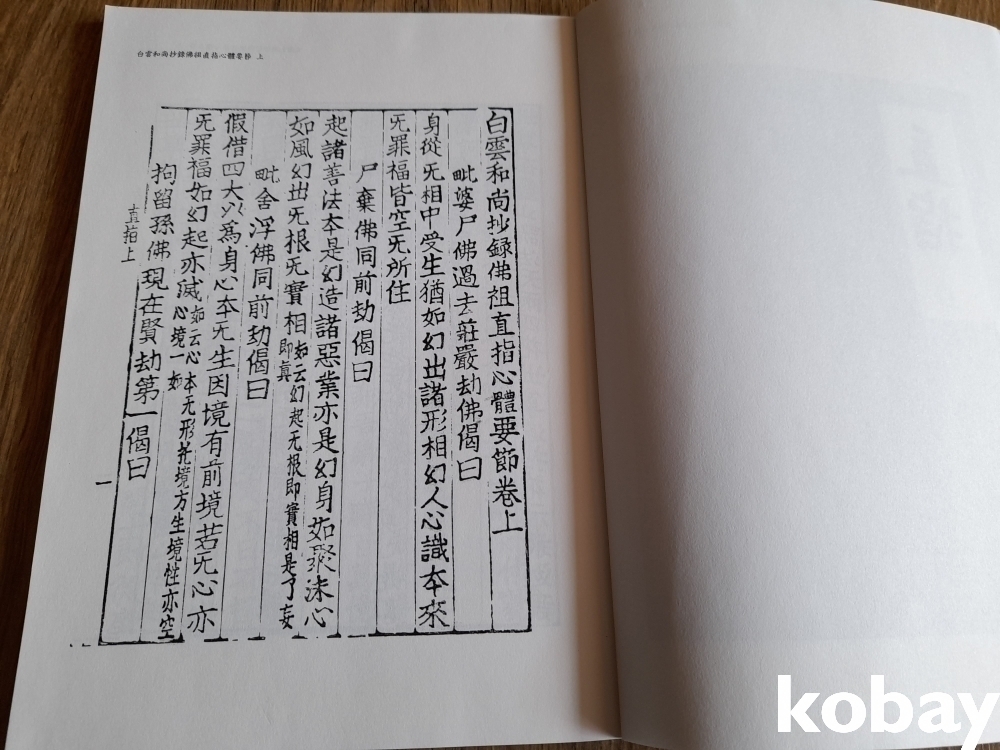 白雲和尚抄錄佛祖直指心體要節 上
白雲和尚抄錄佛祖直指心體要節卷上
毗婆尸佛過去莊嚴劫佛偈曰
身從无相中受生猶如幻出諸形相幻人心識本來
无罪福皆空无所住
尸棄佛同前劫偈曰
起諸善法本是幻造諸惡業亦是幻身如聚沫心
如風幻出无根无實相如云幻起无根即實相是了妄即眞
毗舍浮佛同前劫偈曰
假借四大以爲身心本无生因境有前境若无心亦
无罪福如幻起亦滅如云心本无形托境方生境性亦空心境一如
拘留孫佛現在賢劫第一偈曰
直指上
一
kobay